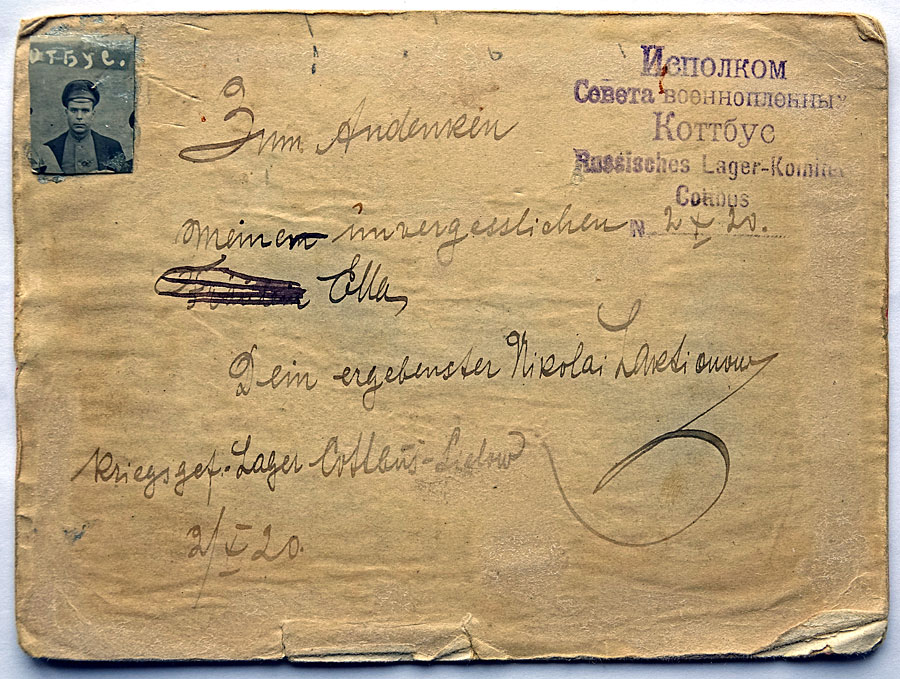 ОТБУС.
Исполком
Совета военнопленных
Коттбус
Russisches Lager-Komitee
Cottbus
N. 2 X 20.
Zum Andenken
meinem unvergesslichen
Ella
Dein ergebenster Nikolai Laktionow
Kriegsgef.-Lager Cottbus-Sielow
2/X 20.